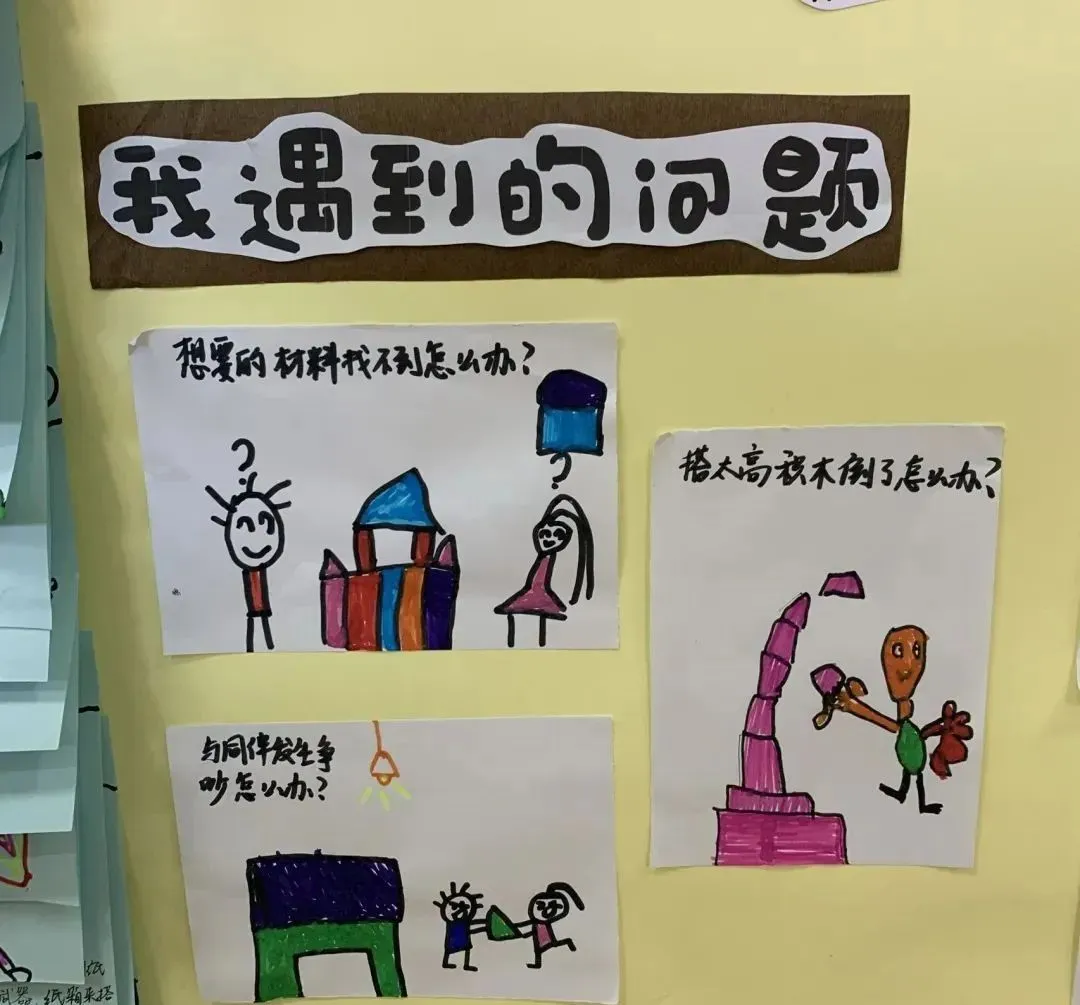 我遇到的问题
想要的材料找不到怎么办?
?
?
搭太高积木倒了怎么办?
与同伴发生争
吵怎么办?
纸
纸箱来搭